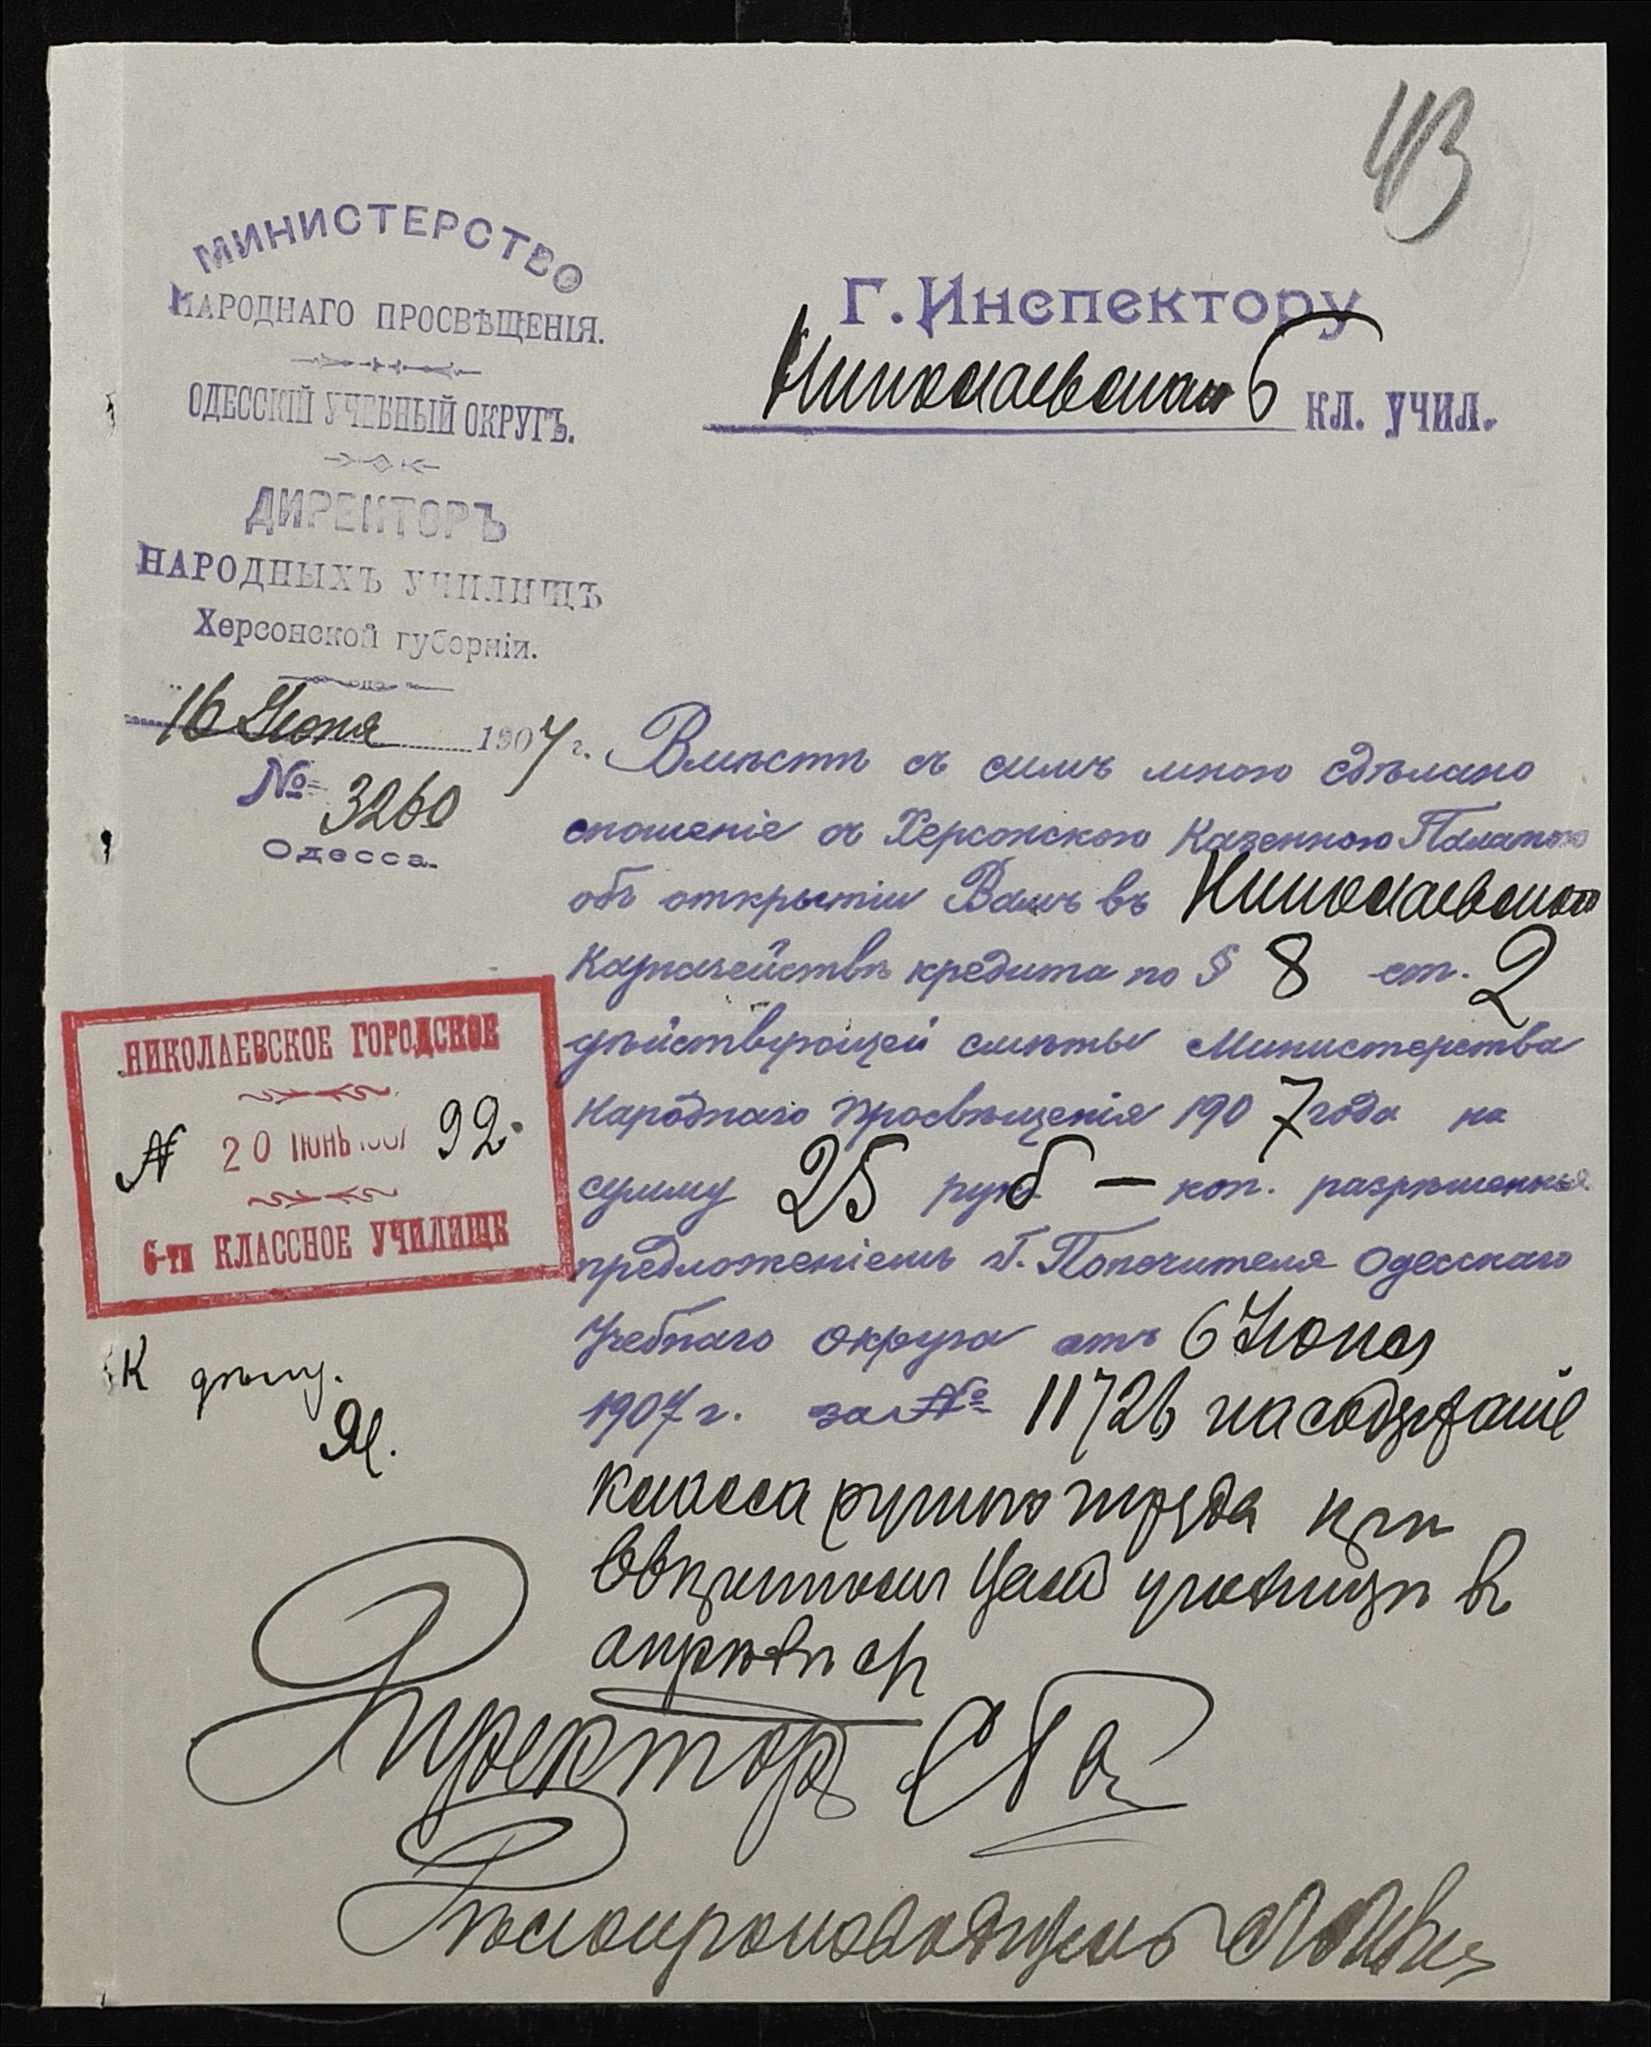 43
МИНИСТЕРСТВО
НАРОДНАГО ПРОСВѢЩЕНІЯ.
ОДЕССКІЙ УЧЕБНЫЙ ОКРУГЪ.
ДИРЕКТОРЪ
НАРОДНЫХЪ УЧИЛИЩЪ
Херсонской губерніи.
16 Іюня 1907 г.
№ 3260
Одесса.
Г. Инспектору
Николаевскаго 6 КЛ. УЧИЛ.
Вмѣстѣ съ симъ мною сдѣлано
сношеніе съ Херсонскою Казенною Палатою
объ открытіи Вамъ въ Николаевскомъ
Казначействѣ кредита по § 8 ст. 2
дѣйствующей смѣты Министерства
Народнаго Просвѣщенія 1907 года на
сумму 25 руб — коп. разрѣшенные
предложеніемъ Г. Попечителя Одесскаго
Учебнаго Округа отъ 6 Іюня
1907 г. за № 11726 на содержаніе
класса ручного труда при
училищѣ въ
Директоръ
Дѣлопроизводитель
НИКОЛАЕВСКОЕ ГОРОДСКОЕ
N 20 ІЮНЬ 1907 92.
6-ти КЛАССНОЕ УЧИЛИЩЕ
К дѣлу.